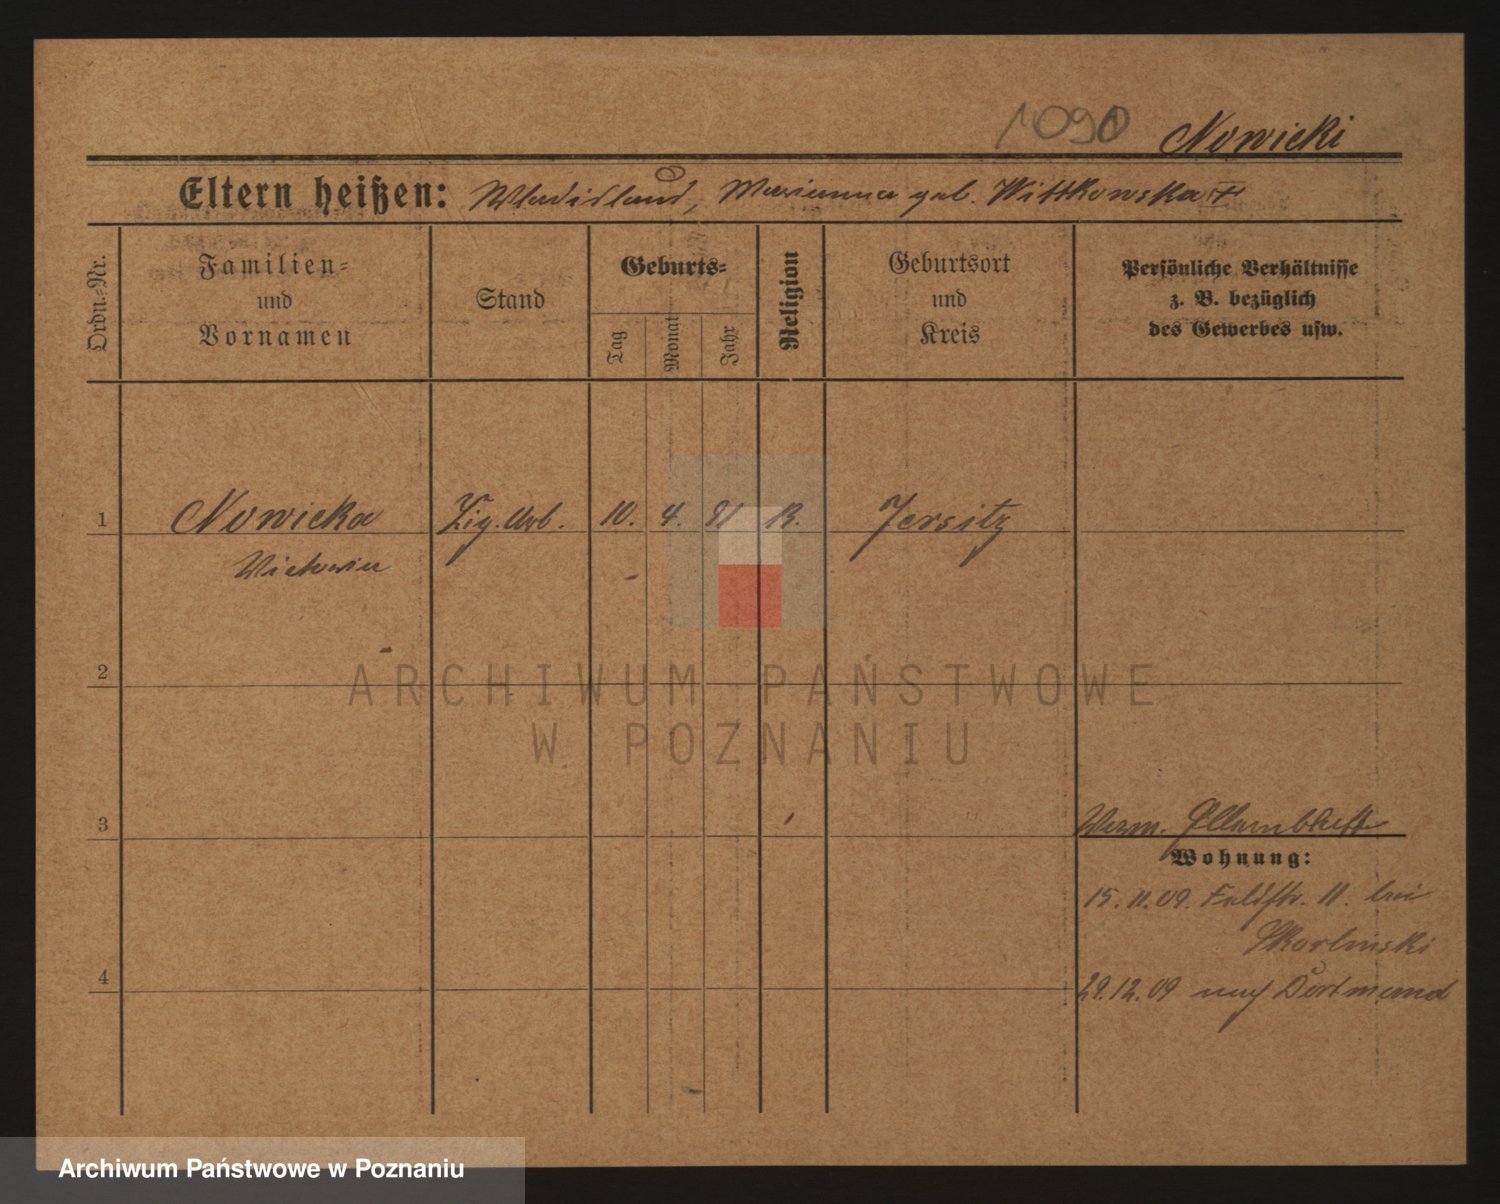 1090 Nowicki
Eltern heißen: Wladisland, Marianna geb. Wittkowska
Ordn.=Nr.
Familien=
und
Vornamen
Stand
Geburts=
Tag
Monat
Jahr
Religion
Geburtsort
und
Kreis
Persönliche Verhältnisse
z. B. bezüglich
des Gewerbes usw.
1 Nowicka Zig. Arb. 10. 4. 91 K. Jersitz
Victoria
2
3
Wohnung:
15.11.09. Feldstr. 11. bei
Skorlinski
4
29.12.09 nach Dortmund
ARCHIWUM PAŃSTWOWE
W POZNANIU
Archiwum Państwowe w Poznaniu